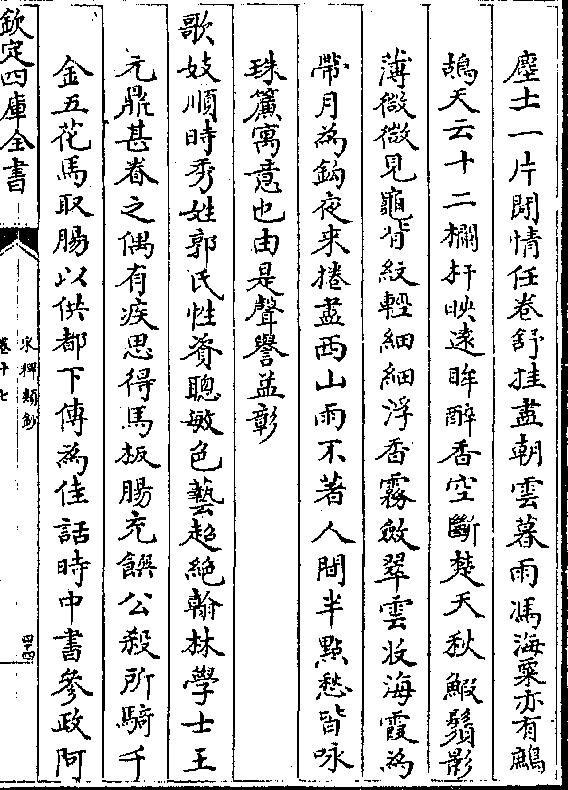 塵土一片閒情任卷舒挂盡朝雲暮雨馮海粟亦有鷓
鴣天云十二欄杆映遠眸醉香空斷楚天秋鰕鬚影
薄微微見龜背紋輕細細浮香霧斂翠雲收海霞為
帶月為鈎夜來捲盡西山雨不著人間半點愁皆咏
珠簾寓意也由是聲譽益彰
歌妓順時秀姓郭氏性資聰敏色藝超絶翰林學士王
元鼎甚眷之偶有疾思得馬板腸充饌公殺所騎千
金五花馬取腸以供都下傳為佳話時中書參政阿
欽定四庫全書
宋稗類鈔
卷十七
四十四